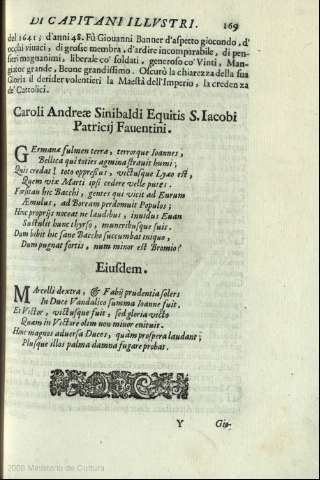 DI CAPITANI ILLVSTRI. 169
del 1641; d'anni 48. Fù Giouanni Banner d'aspetto giocondo, d'
occhi viuaci, di grosse membra, d'ardire incomparabile, di pen-
sieri magnanimi, liberale co' soldati, generoso co' Vinti, Man-
giator grande, Beone grandissimo. Oscurò la chiarezza della sua
Gloria il derider volentieri la Maestà dell'Imperio, la credenza
de' Cattolici.
Caroli Andreæ Sinibaldi Equitis S. Iacobi
Patricij Fauentini.
Germanæ fulmen terra, terrorque Ioannes,
Bellica qui toties agmina strauit humi;
Quis credat! toto oppressus, victusque Lyæo est,
Quem vix Marti ipsi cedere velle putes.
Forsitan hic Bacchi, gentes qui vicit ad Eurum
Æmulus, ad Boream perdomuit Populos;
Hinc proprijs noceat ne laudibus, inuidus Euan
Sustulit hunc thyrso, muneribusque suis.
Dum bibit hic sane Baccho succumbat inique,
Dum pugnat fortis, num minor est Bromio?
Eiusdem.
Marcelli dextra, & Fabij prudentia solers
In Duce Vandalico summa Ioanne fuit.
Et Victor, victusque fuit, sed gloria victo
Quam in Victore olim non minor enituit.
Hinc magnos aduersa Duces, quàm prospera laudant;
Plusque illos palma damna fugare probat.
Y Gio-
2008 Ministerio de Cultura